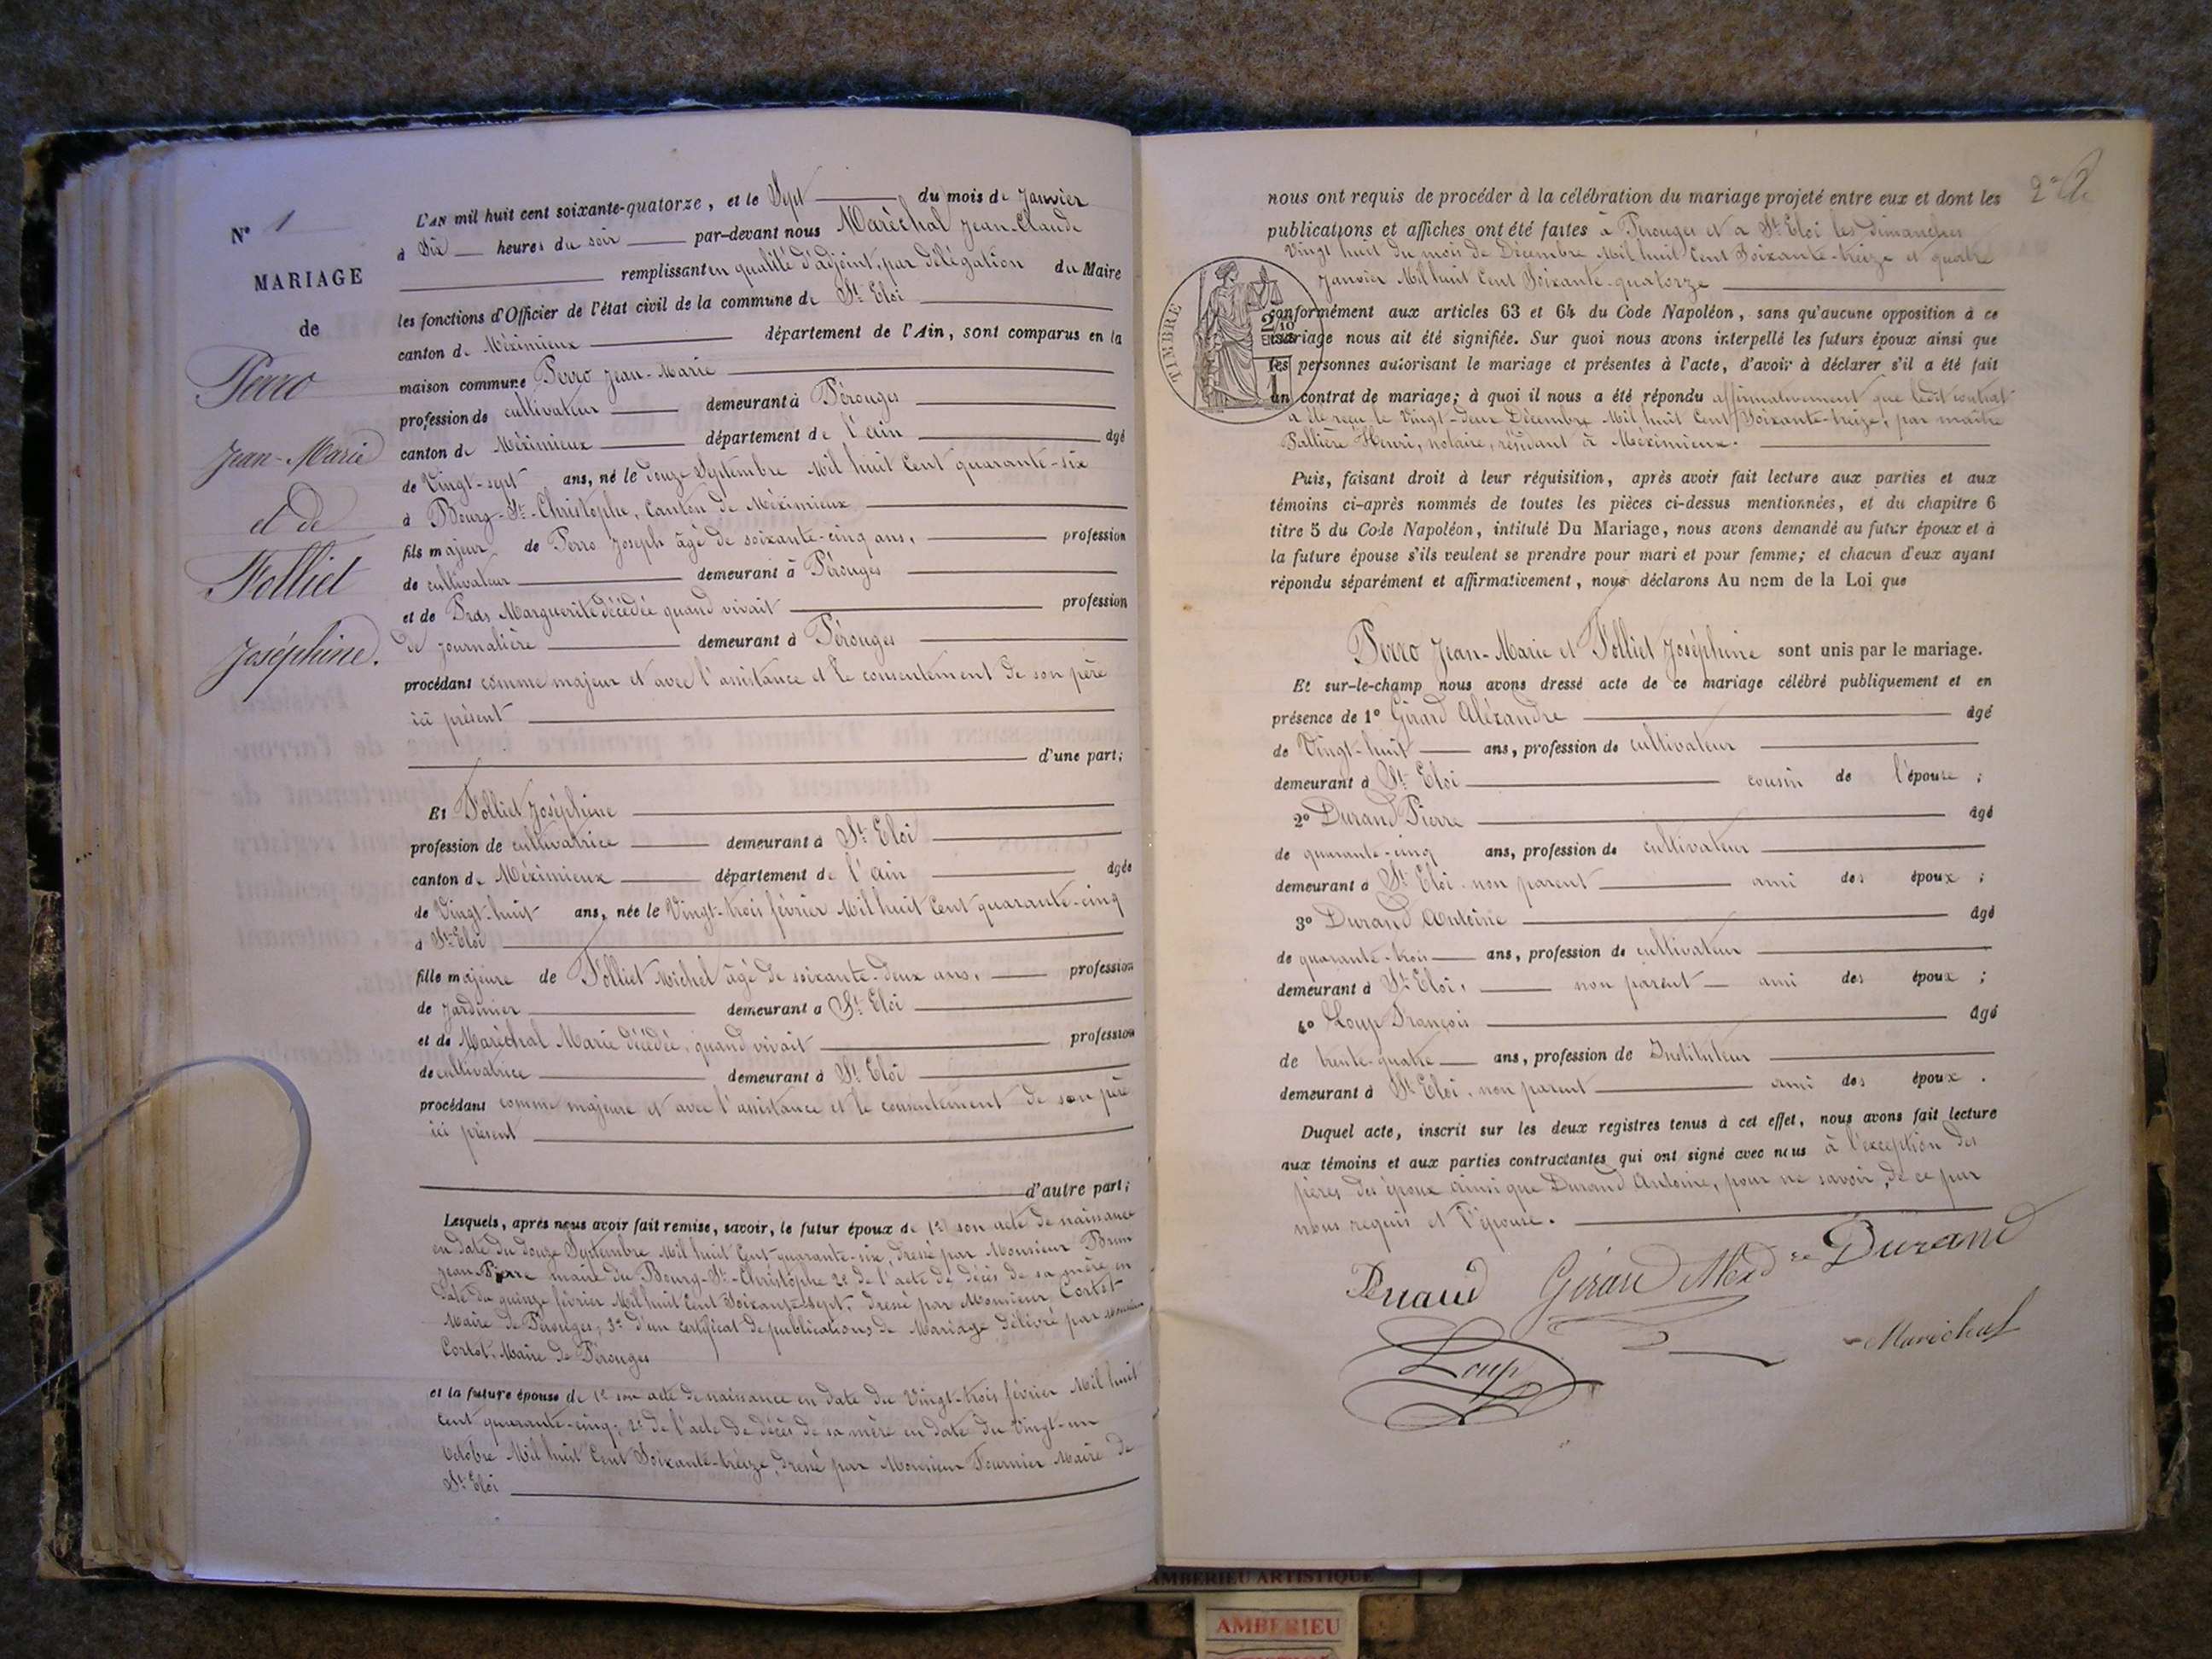 N° 1
MARIAGE
de
Perro
Jean-Marie
et de
Folliet
Joséphine.
L'AN mil huit cent soixante-quatorze, et le Sept du mois de Janvier
à Six heures du soir par-devant nous Maréchal Jean-Claude
remplissant en qualité d'adjoint, par délégation du Maire
les fonctions d'Officier de l'état civil de la commune de St Eloi
canton de Méximieux département de l'Ain, sont comparus en la
maison commune Perro Jean-Marie
profession de cultivateur demeurant à Pérouges
canton de Méximieux département de l'ain âgé
de Vingt-sept ans, né le douze Septembre Mil huit Cent quarante-six
à Bourg-St-Christophe, Canton de Méximieux
fils majeur de Perro Joseph âgé de soixante-cinq ans, profession
de cultivateur demeurant à Pérouges
et de Pras Marguerite décédée quand vivait profession
de journalière demeurant à Pérouges
procédant comme majeur et avec l'assistance et le consentement de son père
ici présent
d'une part;
Et Folliet Joséphine
profession de cultivatrice demeurant à St Eloi
canton de Méximieux département de l'ain âgée
de Vingt-huit ans, née le Vingt-trois février Mil huit Cent quarante-cinq
à St-Eloi
fille majeure de Folliet Michel âgé de soixante-deux ans, profession
de Jardinier demeurant à St Eloi
et de Maréchal Marie décédée, quand vivait profession
de cultivatrice demeurant à St Eloi
procédant comme majeure et avec l'assistance et le consentement de son père
ici présent
d'autre part;
Lesquels, après nous avoir fait remise, savoir, le futur époux de 1° son acte de naissance
en date du douze Septembre Mil huit Cent-quarante-six, dressé par Monsieur Brun
Jean-Pierre maire du Bourg-St-Christophe 2° de l'acte de décès de sa mère en
date du quinze février Mil huit Cent Soixante-sept, dressé par Monsieur Cortot
Maire de Pérouges, 3° d'un certificat de publications de Mariage délivré par Monsieur
Cortot, Maire de Pérouges
et la future épouse de 1° son acte de naissance en date du Vingt-trois février Mil huit
Cent quarante-cinq; 2° de l'acte de décès de sa mère en date du Vingt-un
Octobre Mil huit Cent Soixante-treize, dressé par Monsieur Fournier Maire de
St Eloi
nous ont requis de procéder à la célébration du mariage projeté entre eux et dont les
publications et affiches ont été faites à Pérouges et à St Eloi les dimanches
Vingt huit du mois de Décembre Mil huit Cent Soixante-treize et quatre
Janvier Mil huit Cent Soixante-quatorze
TIMBRE
conformément aux articles 63 et 64 du Code Napoléon, sans qu'aucune opposition à ce
mariage nous ait été signifiée. Sur quoi nous avons interpellé les futurs époux ainsi que
les personnes autorisant le mariage et présentes à l'acte, d'avoir à déclarer s'il a été fait
un contrat de mariage; à quoi il nous a été répondu affirmativement que ledit contrat
a été reçu le Vingt-deux Décembre Mil huit Cent Soixante-treize, par maître
Pallière Henri, notaire, résidant à Meximieux.
Puis, faisant droit à leur réquisition, après avoir fait lecture aux parties et aux
témoins ci-après nommés de toutes les pièces ci-dessus mentionnées, et du chapitre 6
titre 5 du Code Napoléon, intitulé Du Mariage, nous avons demandé au futur époux et à
la future épouse s'ils veulent se prendre pour mari et pour femme; et chacun d'eux ayant
répondu séparément et affirmativement, nous déclarons Au nom de la Loi que
Perro Jean-Marie et Folliet Joséphine sont unis par le mariage.
Et sur-le-champ nous avons dressé acte de ce mariage célébré publiquement et en
présence de 1° Girard Aléxandre âgé
de Vingt-huit ans, profession de cultivateur
demeurant à St Eloi cousin de l'épouse;
2° Durand Pierre âgé
de quarante-cinq ans, profession de cultivateur
demeurant à St Eloi, non parent ami des époux;
3° Durand Antoine âgé
de quarante-trois ans, profession de cultivateur
demeurant à St Eloi, non parent ami des époux;
4° Loup François âgé
de trente-quatre ans, profession de Instituteur
demeurant à St Eloi, non parent ami des époux.
Duquel acte, inscrit sur les deux registres tenus à cet effet, nous avons fait lecture
aux témoins et aux parties contractantes qui ont signé avec nous à l'exception des
pères des époux ainsi que Durand Antoine, pour ne savoir, de ce par
nous requis et l'épouse.
Girard Alexdre Durand
Loup Maréchal
AMBERIEU ARTISTIQUE
AMBERIEU